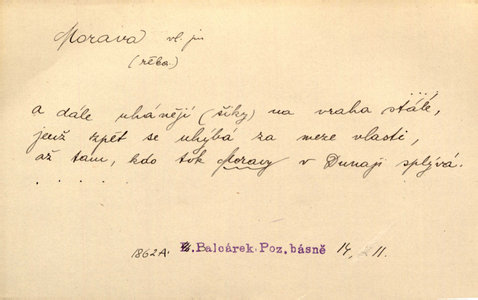 Morava vl. jm.
(řeka.)
a dále uhánějí (šiky) na vraha stále,
jenž zpět se uhýbá za meze vlasti,
až tam, kdo tok Moravy v Dunaji splývá.
. . . . .
1862A. B. Balcárek. Poz. básně 14, II.